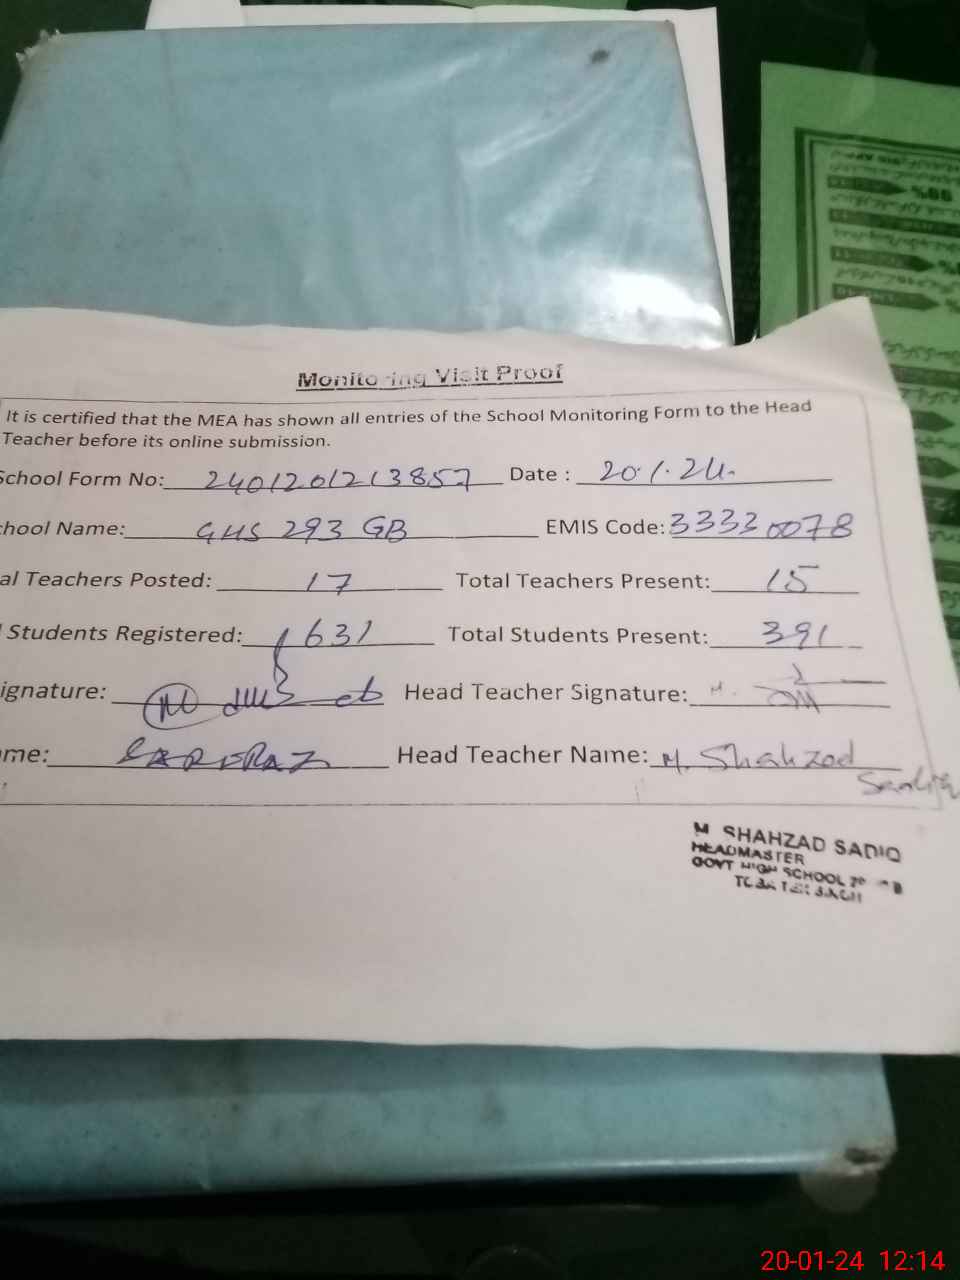 Monitoring Visit Proof
It is certified that the MEA has shown all entries of the School Monitoring Form to the Head
Teacher before its online submission.
School Form No: 2401201213857 Date : 20.1.24.
chool Name: GHS 293 GB EMIS Code: 33330078
al Teachers Posted: 17 Total Teachers Present: 15
Students Registered: 631 Total Students Present: 391
ignature: Head Teacher Signature:
me: SARFRAZ Head Teacher Name: M. Shahzad
Sadiq
M SHAHZAD SADIQ
HEADMASTER
GOVT HIGH SCHOOL
20-01-24 12:14